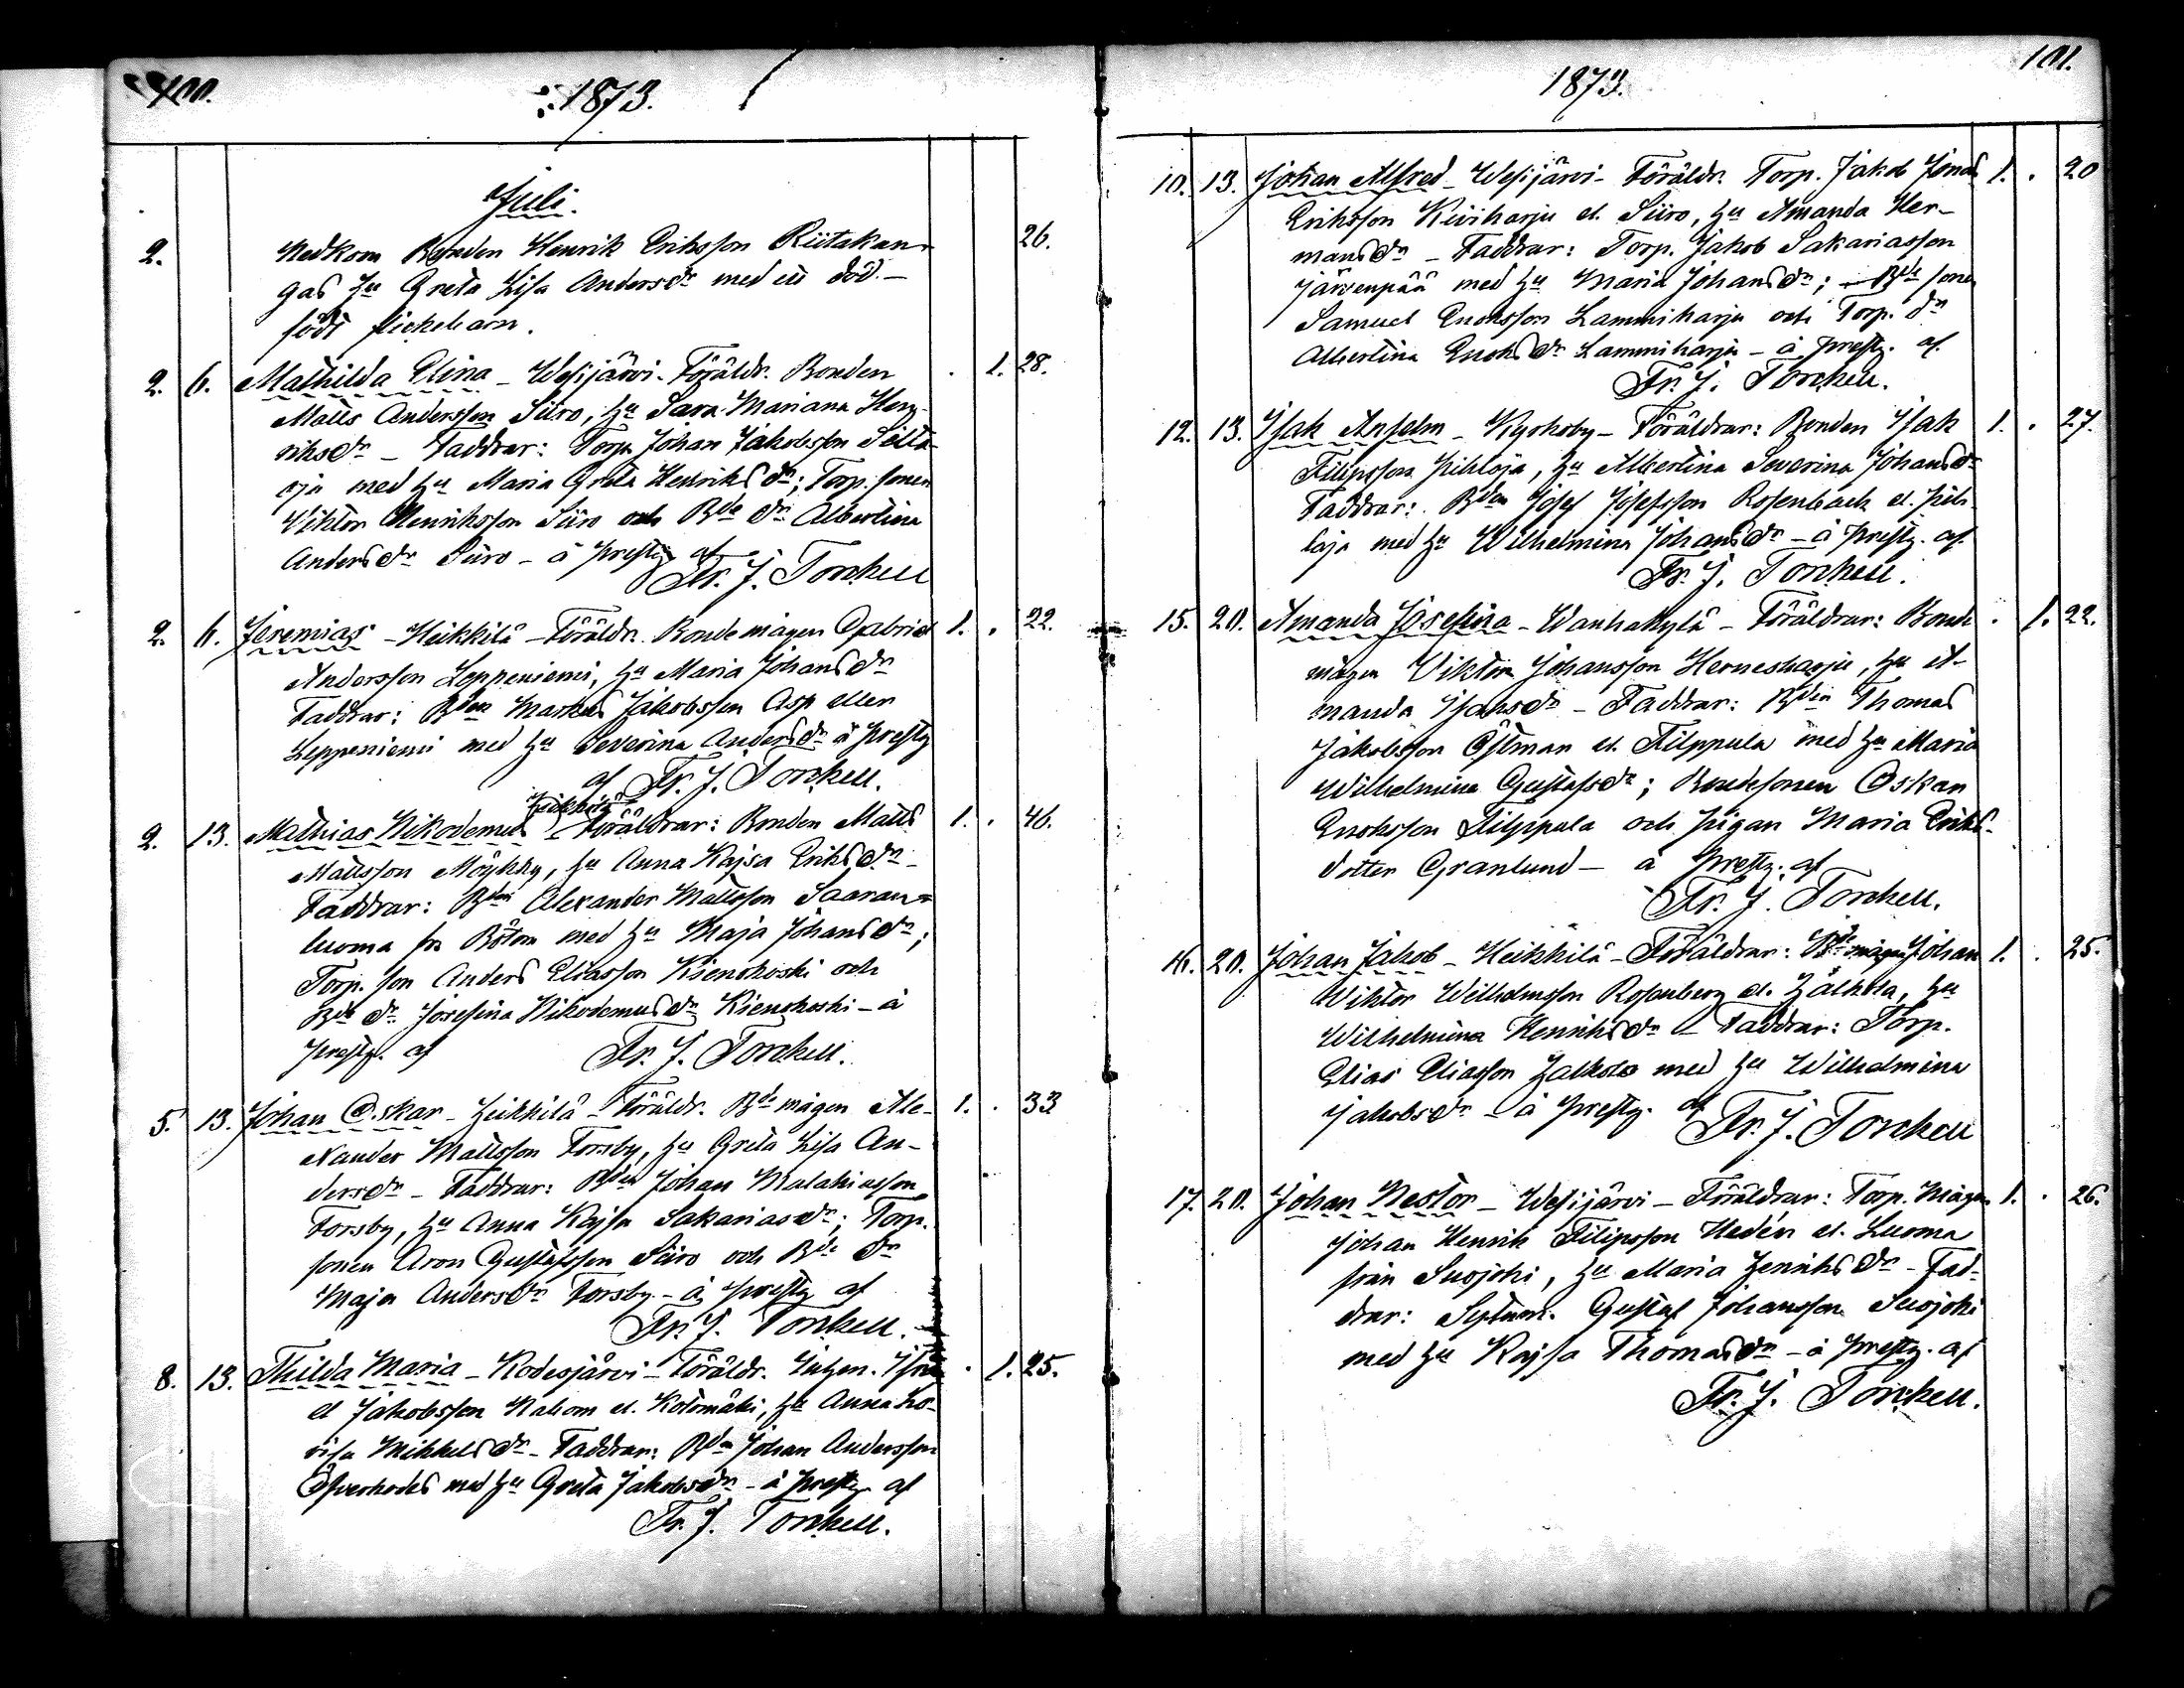 100.
1873.
Juli.
2. Nedkom Bonden Henrik Eriksson Riitakan- 26.
gas hu Greta Lisa Andersdr med ett död-
födt flickebarn.
2. 6. Mathilda Elina - Wesijärvi - Föräldr. Bonden . 1. 28.
Matts Andersson Siiro, hu Sara Mariana Hen-
riksdr - Faddrar: Torp. Johan Jakobsson Silta-
oja med hu Maria Greta Henriksdr; Torp. sonen
Viktor Henriksson Siiro och Bde dr Albertina
Andersdr Siiro - å prestg. af
Fr. J. Torckell
2. 6. Jeremias - Heikkilä - Föräldr. Bonde mågen Gabriel 1. . 22.
Andersson Leppeniemi, hu Maria Johansdr
Faddrar: Bden Markus Jakobsson Asp eller
Leppeniemi med hu Severina Andersdr å prestg
af Fr. J. Torckell.
Heikkilä
2. 13. Mathias Nikodemus - Föräldrar: Bonden Matts 1. . 46.
Mattsson Möykky, hu Anna Kajsa Eriksdr -
Faddrar: Bden Alexander Mattsson Saaran-
luoma fr Bötom med hu Maja Johansdr;
Torp. son Anders Eliasson Kienokoski och
Bde dr Josefina Nikodemusdr Kienokoski - å
prestg. af Fr. J. Torckell.
5. 13. Johan Oskar - Heikkilä - Föräldr. Bde mågen Ale- 1. . 33
xander Mattsson Forsby, hu Greta Lisa An-
dersdr - Faddrar: Bden Johan Malakiasson
Forsby, hu Anna Kajsa Sakariasdr; Torp.
sonen Aron Gustafsson Siiro och Bde dr
Maja Andersdr Forsby - å prestg af
Fr. J. Torckell.
8. 13. Thilda Maria - Kodesjärvi - Föräldr. . 1. 25.
el Jakobsson el. Kotomäki, hu Anna Lo-
visa Mikkelsdr - Faddrar: Bden Johan Andersson
Öfverkodes med hu Greta Jakobsdr - å prestg af
Fr. J. Torckell.
101.
1873.
10. 13. Johan Alfred - Wesijärvi - Föräldr. Torp. Jakob Jonas 1. . 20
Eriksson Kiviharju el. Siiro, hu Amanda Her-
mansdr - Faddrar: Torp. Jakob Sakariasson
Järvenpää med hu Maria Johansdr; Bde sonen
Samuel Enoksson Lammiharju och Torp. dr
Albertina Enoksdr Lammiharju - å prestg. af
Fr. J. Torckell.
12. 13. Isak Anselm - Kyrkoby - Föräldrar: Bonden Isak 1. . 27.
Filipsson Pihlaja, hu Albertina Severina Johansdr
Faddrar: Bden Josef Josefsson Rosenback el. Pih-
laja med hu Wilhelmina Johansdr - å prestg. af
Fr. J. Torckell.
15. 20. Amanda Josefina - Wanhakylä - Föräldrar: Bonde . 1. 22.
mågen Viktor Johansson Hernesharju, hu A-
manda Isaksdr - Faddrar: Bden Thomas
Jakobsson Östman el. Filppula med hu Maria
Wilhelmina Gustafsdr; Bondesonen Oskar
Enoksson Filppula och pigan Maria Eriks-
dotter Granlund - å prestg. af
Fr. J. Torckell.
16. 20. Johan Jakob - Heikkilä - Föräldrar: Bde mågen Johan 1. . 25.
Viktor Wilhelmsson Rosenberg el. Hälkola, hu
Wilhelmina Henriksdr - Faddrar: Torp.
Elias Eliasson Halkola med hu Wilhelmina
Jakobsdr - å prestg. af
Fr. J. Torckell
17. 20. Johan Nestor - Wesijärvi - Föräldrar: Torp. mågen 1. . 26.
Johan Henrik Filipsson Hedén el. Luoma
från Suojoki, hu Maria Henriksdr - Fad-
drar: Gustaf Johansson Suojoki
med hu Kajsa Thomasdr - å prestg. af
Fr. J. Torckell.